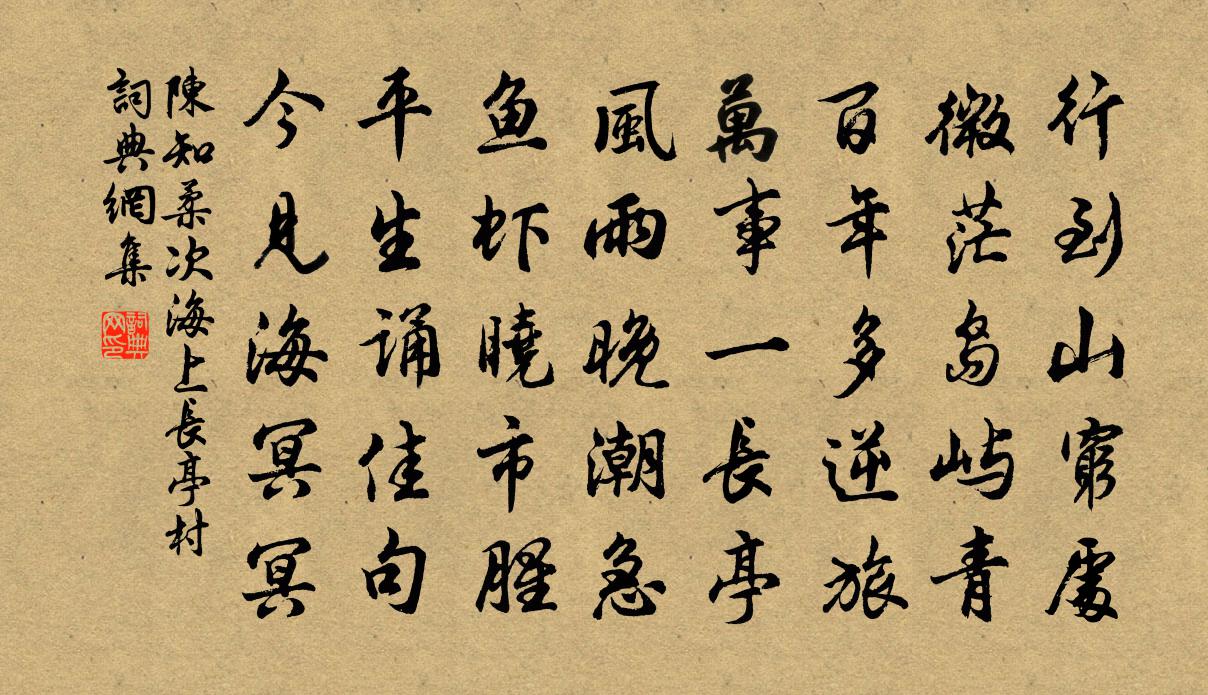 行到山窮處
微茫島嶼青
百年多逆旅
萬事一長亭
風雨晚潮急
鱼虾曉市腥
平生诵佳句
今見海冥冥
陳知柔次海上長亭村
詞典網集
詞典网印